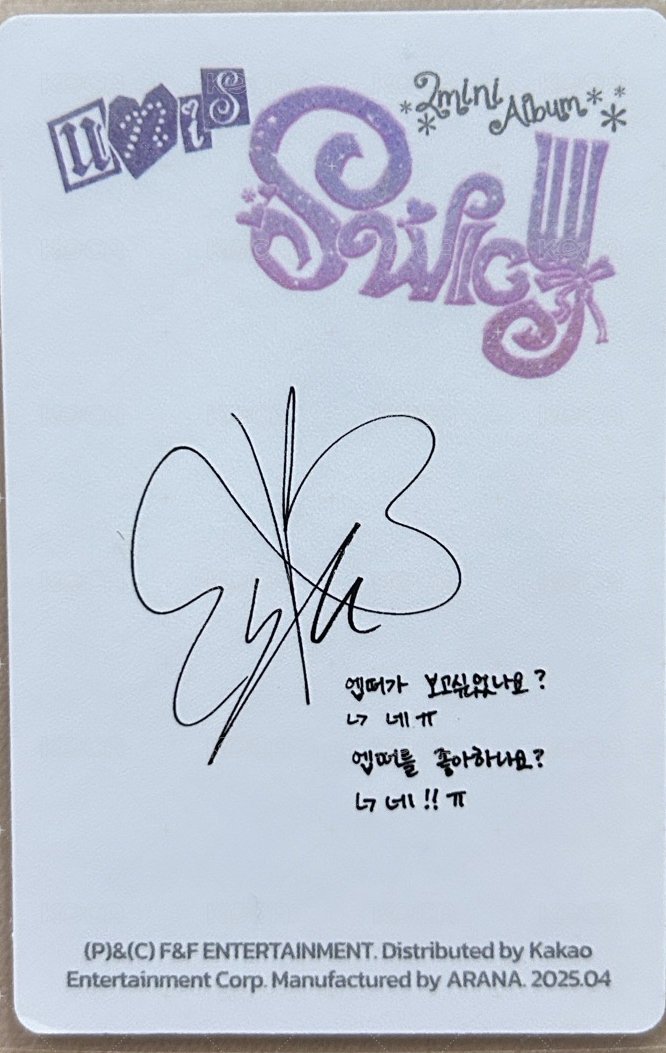 unis
2mini Album
Swicy
엡떠가 보고싶었나요?
↳ 네 ㅠ
엡떠를 좋아하나요?
↳ 네!! ㅠ
(P)&(C) F&F ENTERTAINMENT. Distributed by Kakao
Entertainment Corp. Manufactured by ARANA. 2025.04